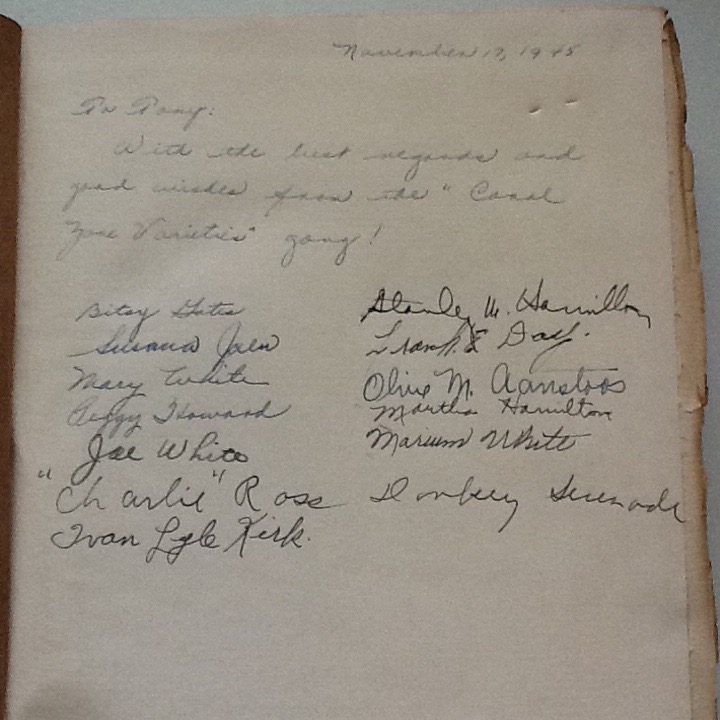 November 17, 1945
To Tony:
With the best regards and
good wishes from the "Canal
Zone Varieties" gang!
Betsy Gates
Susana Jaen
Mary White
Peggy Howard
Joe White
"Charlie" Ross
Ivan Lyle Kirk.
Stanley W. Hamilton
Frank E Day.
Olive M. Aanstoos
Martha Hamilton
White
Donkey Serenade